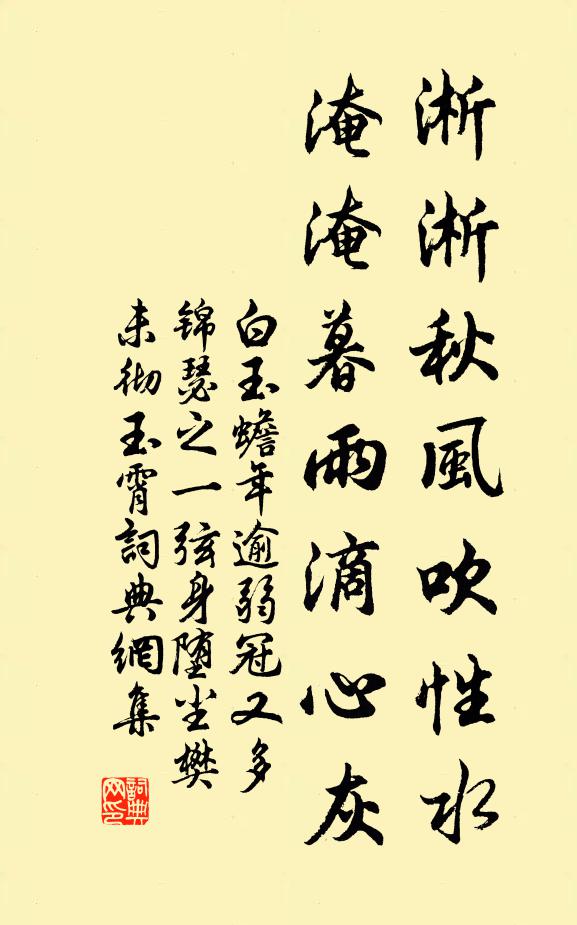 淅淅秋風吹性水
淹淹暮雨滴心灰
白玉蟾年逾弱冠又多
锦瑟之一弦身堕尘樊
未彻玉霄詞典網集
詞典網印